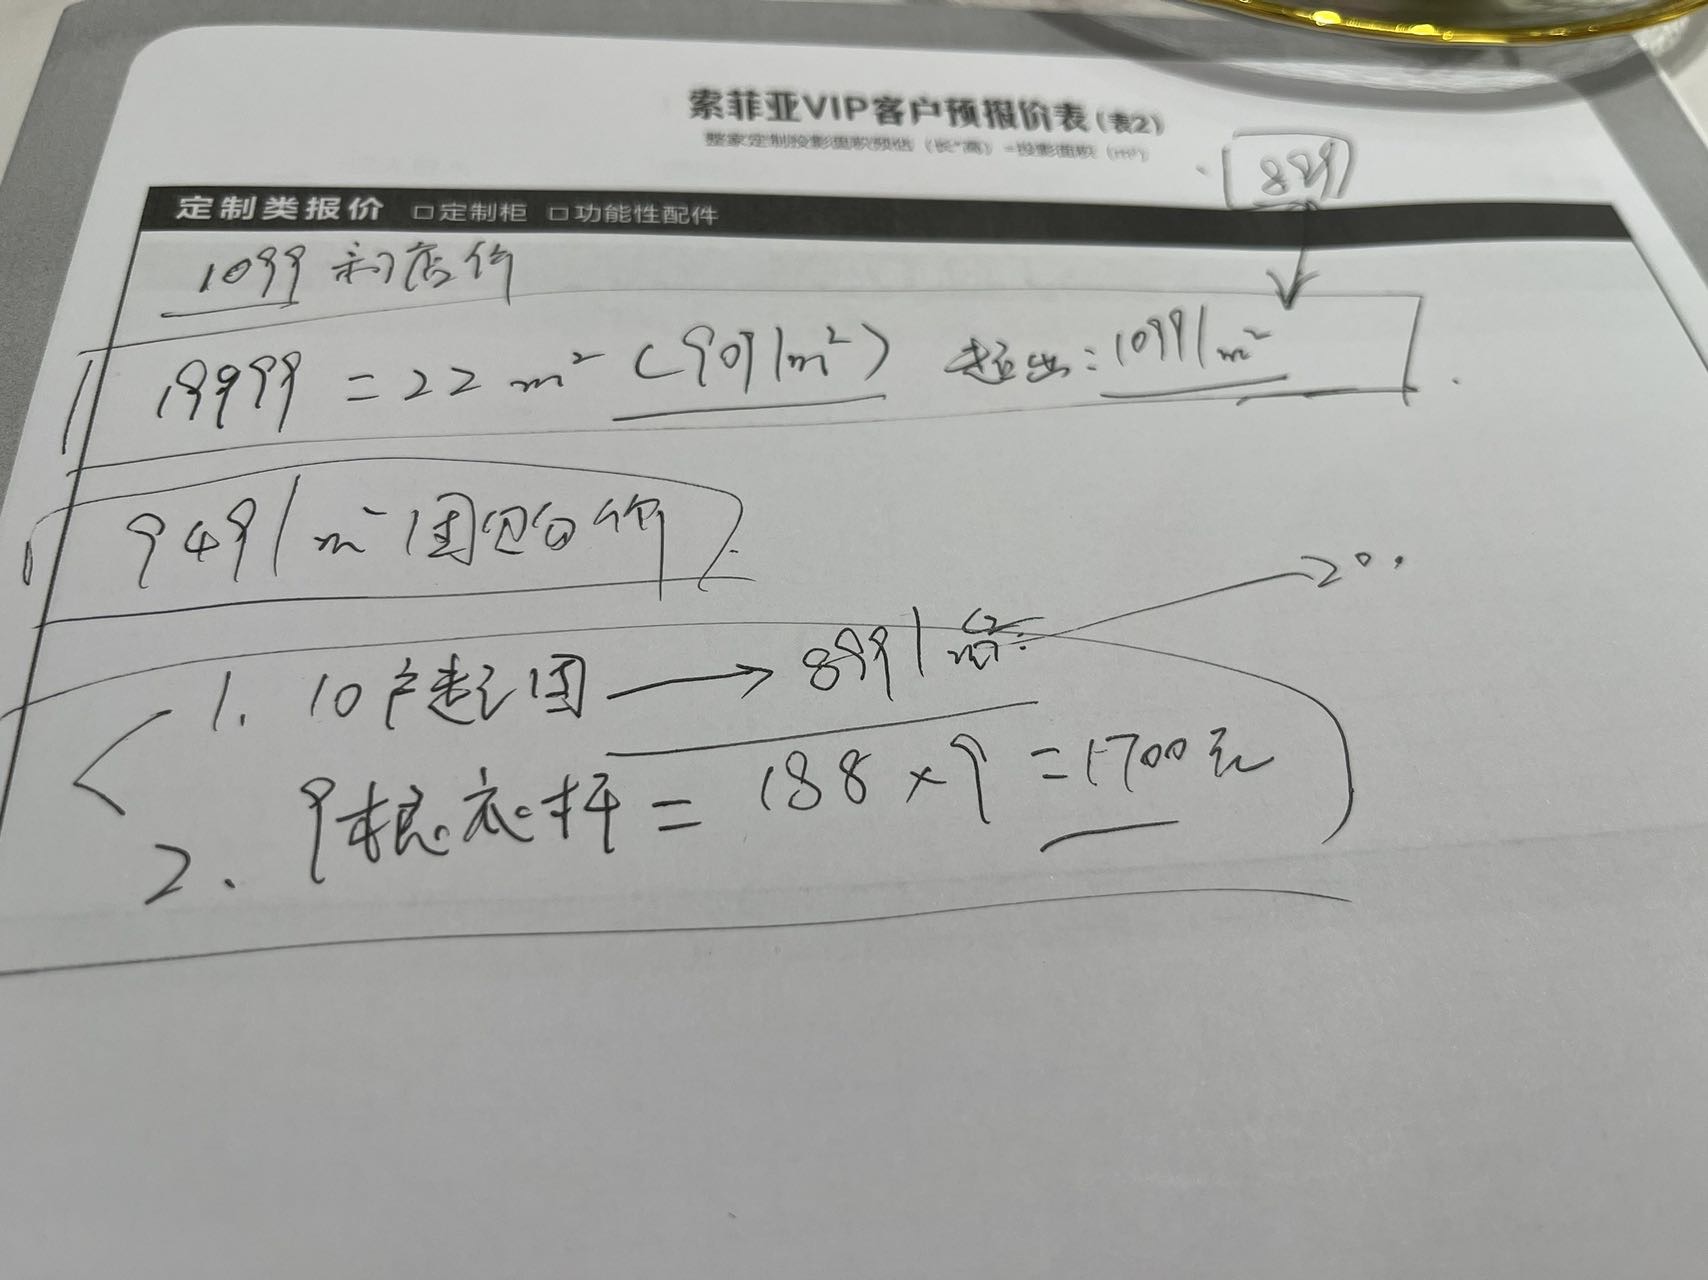 索菲亚VIP客户预报价表(表2)
整家定制投影面积预估(长*高)=投影面积(m²)
899
定制类报价 □定制柜 □功能性配件
1099 到店价
19999 = 22 m² (909/m²) 超出: 1099/m²
949/m² 团购价
→ 200
1. 10户起团 → 899/m².
2. 9根衣杆 = 188×9 = 1700元